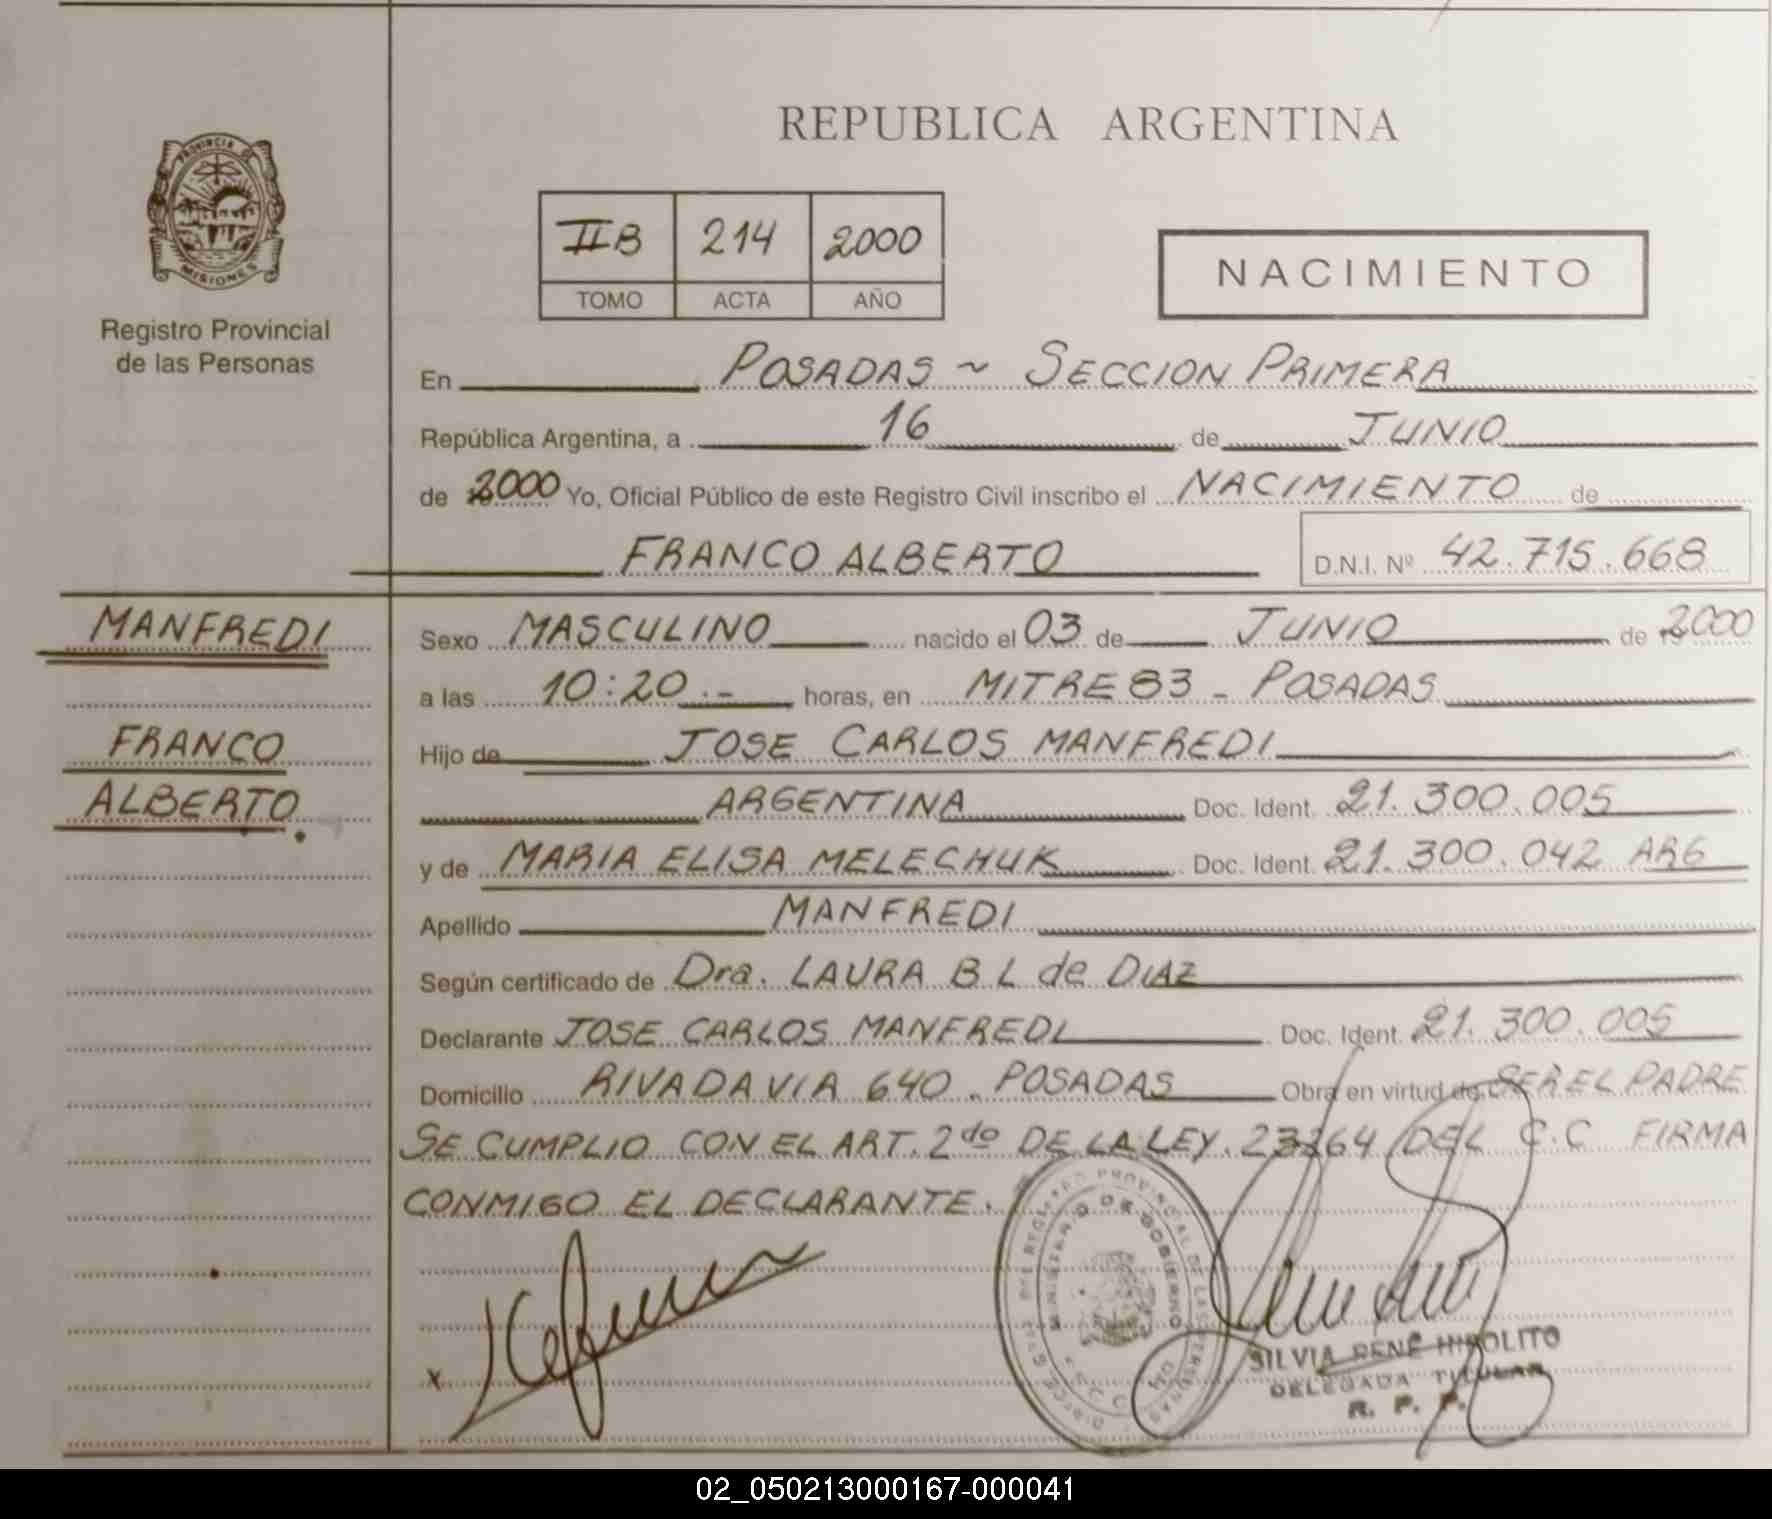 REPUBLICA ARGENTINA
PROVINCIA DE
MISIONES
Registro Provincial
de las Personas
IIB 214 2000
TOMO ACTA AÑO
NACIMIENTO
En POSADAS ~ SECCION PRIMERA
República Argentina, a 16 de JUNIO
de 2000 Yo, Oficial Público de este Registro Civil inscribo el NACIMIENTO de
FRANCO ALBERTO D.N.I. Nº 42.715.668
MANFREDI
FRANCO
ALBERTO.
Sexo MASCULINO nacido el 03 de JUNIO de 2000
a las 10:20.- horas, en MITRE 83 - POSADAS
Hijo de JOSE CARLOS MANFREDI
ARGENTINA Doc. Ident. 21.300.005
y de MARIA ELISA MELECHUK Doc. Ident. 21.300.042 ARG
Apellido MANFREDI
Según certificado de Dra. LAURA B L de DIAZ
Declarante JOSE CARLOS MANFREDI Doc. Ident. 21.300.005
Domicilio RIVADAVIA 640. POSADAS Obra en virtud de SER EL PADRE
SE CUMPLIO CON EL ART. 2do DE LA LEY. 23264 DEL C.C FIRMA
CONMIGO EL DECLARANTE.
MINISTERIO DE GOBIERNO
SILVIA RENÉ HIPOLITO
DELEGADA TITULAR
R. P. P.
02_050213000167-000041